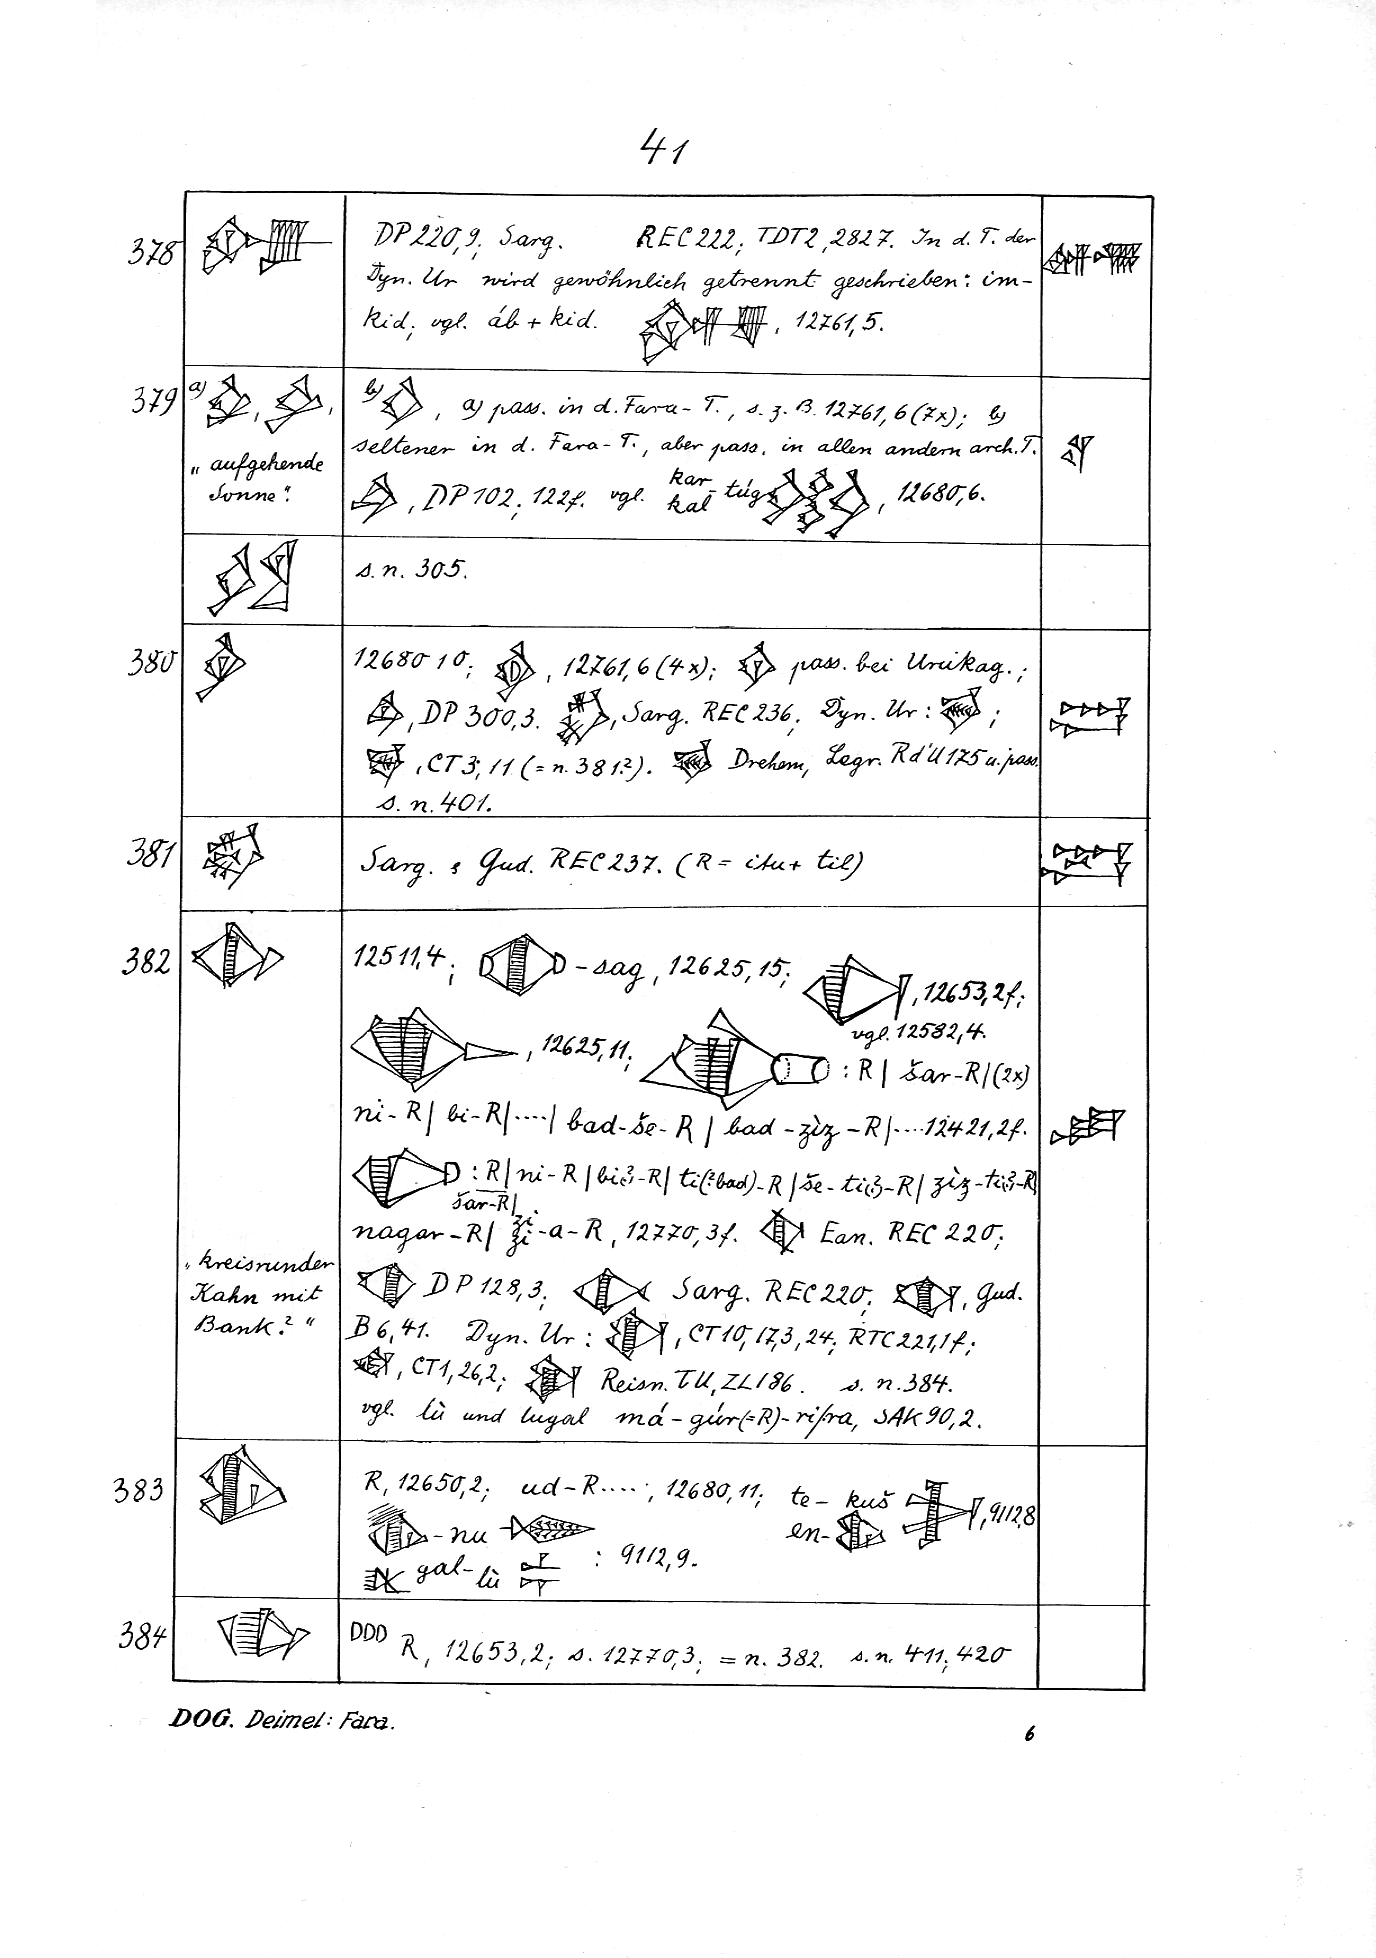 41
378 DP 220,9; Sarg. REC 222; TDT 2, 2827. In d. T. der
Dyn. Ur wird gewöhnlich getrennt geschrieben: im-
kid; vgl. áb + kid. , 12761,5.
379 a) , , b) , a) pass. in d. Fara-T., s. z. B. 12761,6 (7x); b)
seltener in d. Fara-T., aber pass. in allen andern arch. T.
„aufgehende
Sonne".
, DP 102; 122f. vgl. kar-
kal - túg , 12680,6.
s. n. 305.
380 12680 10; , 12761,6 (4x); pass. bei Urukag.;
, DP 300,3. , Sarg. REC 236; Dyn. Ur: ;
, CT 3; 11 (= n. 381?). Drehem, Legr. Rd'U 175 u. pass.
s. n. 401.
381 Sarg. & Gud. REC 237. (R = itu + til)
382 12511,4; -sag, 12625,15; , 12653,2f;
vgl. 12582,4.
, 12625,11; : R | šar-R | (2x)
ni-R | bi-R | .... | bad-še-R | bad-zìz-R | .... 12421,2f.
: R | ni-R | bi(?)-R | ti(?bad)-R | še-ti(?)-R | zìz-ti(?)-R |
šar-R |
nagar-R | zi-zi-a-R, 12770,3f. Ean. REC 220;
„kreisrunder
Kahn mit
Bank?"
DP 128,3; Sarg. REC 220; , Gud.
B 6,41. Dyn. Ur: , CT 10, 17,3,24; RTC 221,1f;
, CT 1, 26,2; Reisn. TU, ZL 186. s. n. 384.
vgl. lù und lugal má-gúr(=R)-ri/ra, SAK 90,2.
383 R, 12650,2; ud-R...., 12680,11; te- kuš , 9112,8
en-
-nu
gal-lù : 9112,9.
384 DDD R, 12653,2; s. 12770,3; = n. 382. s. n. 411; 420
DOG. Deimel: Fara.
6